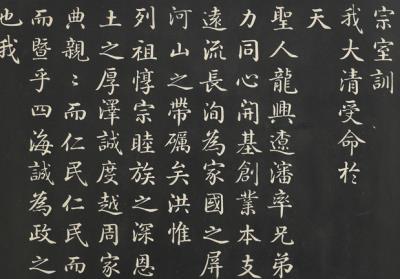 宗室訓
我大清受命於
天
聖人龍興遼瀋率兄弟
力同心開基創業本支
遠流長洵為家國之屏
河山之帶礪矣洪惟
列祖惇宗睦族之深恩
土之厚澤誠度越周家
典親〻而仁民仁民而
而暨乎四海誠為政之
也我